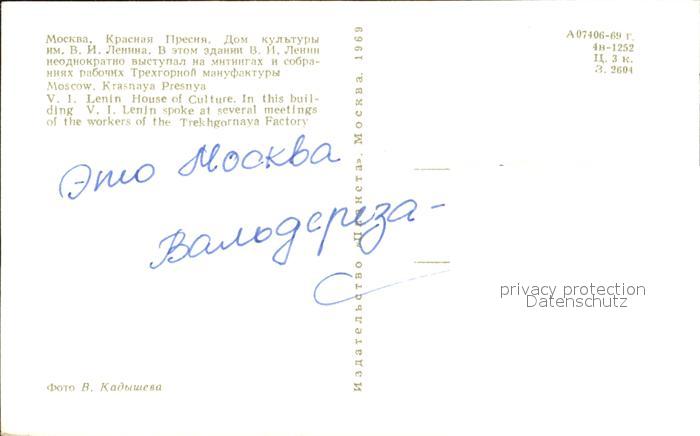 Москва, Красная Пресня. Дом культуры
им. В. И. Ленина. В этом здании В. И. Ленин
неоднократно выступал на митингах и собра-
ниях рабочих Трехгорной мануфактуры
Moscow. Krasnaya Presnya
V. I. Lenin House of Culture. In this buil-
ding V. I. Lenin spoke at several meetings
of the workers of the Trekhgornaya Factory
А07406-69 г.
4в-1252
Ц. 3 к.
З. 2604
Издательство «Планета». Москва. 1969
Это Москва
privacy protection
Datenschutz
Фото В. Кадышева